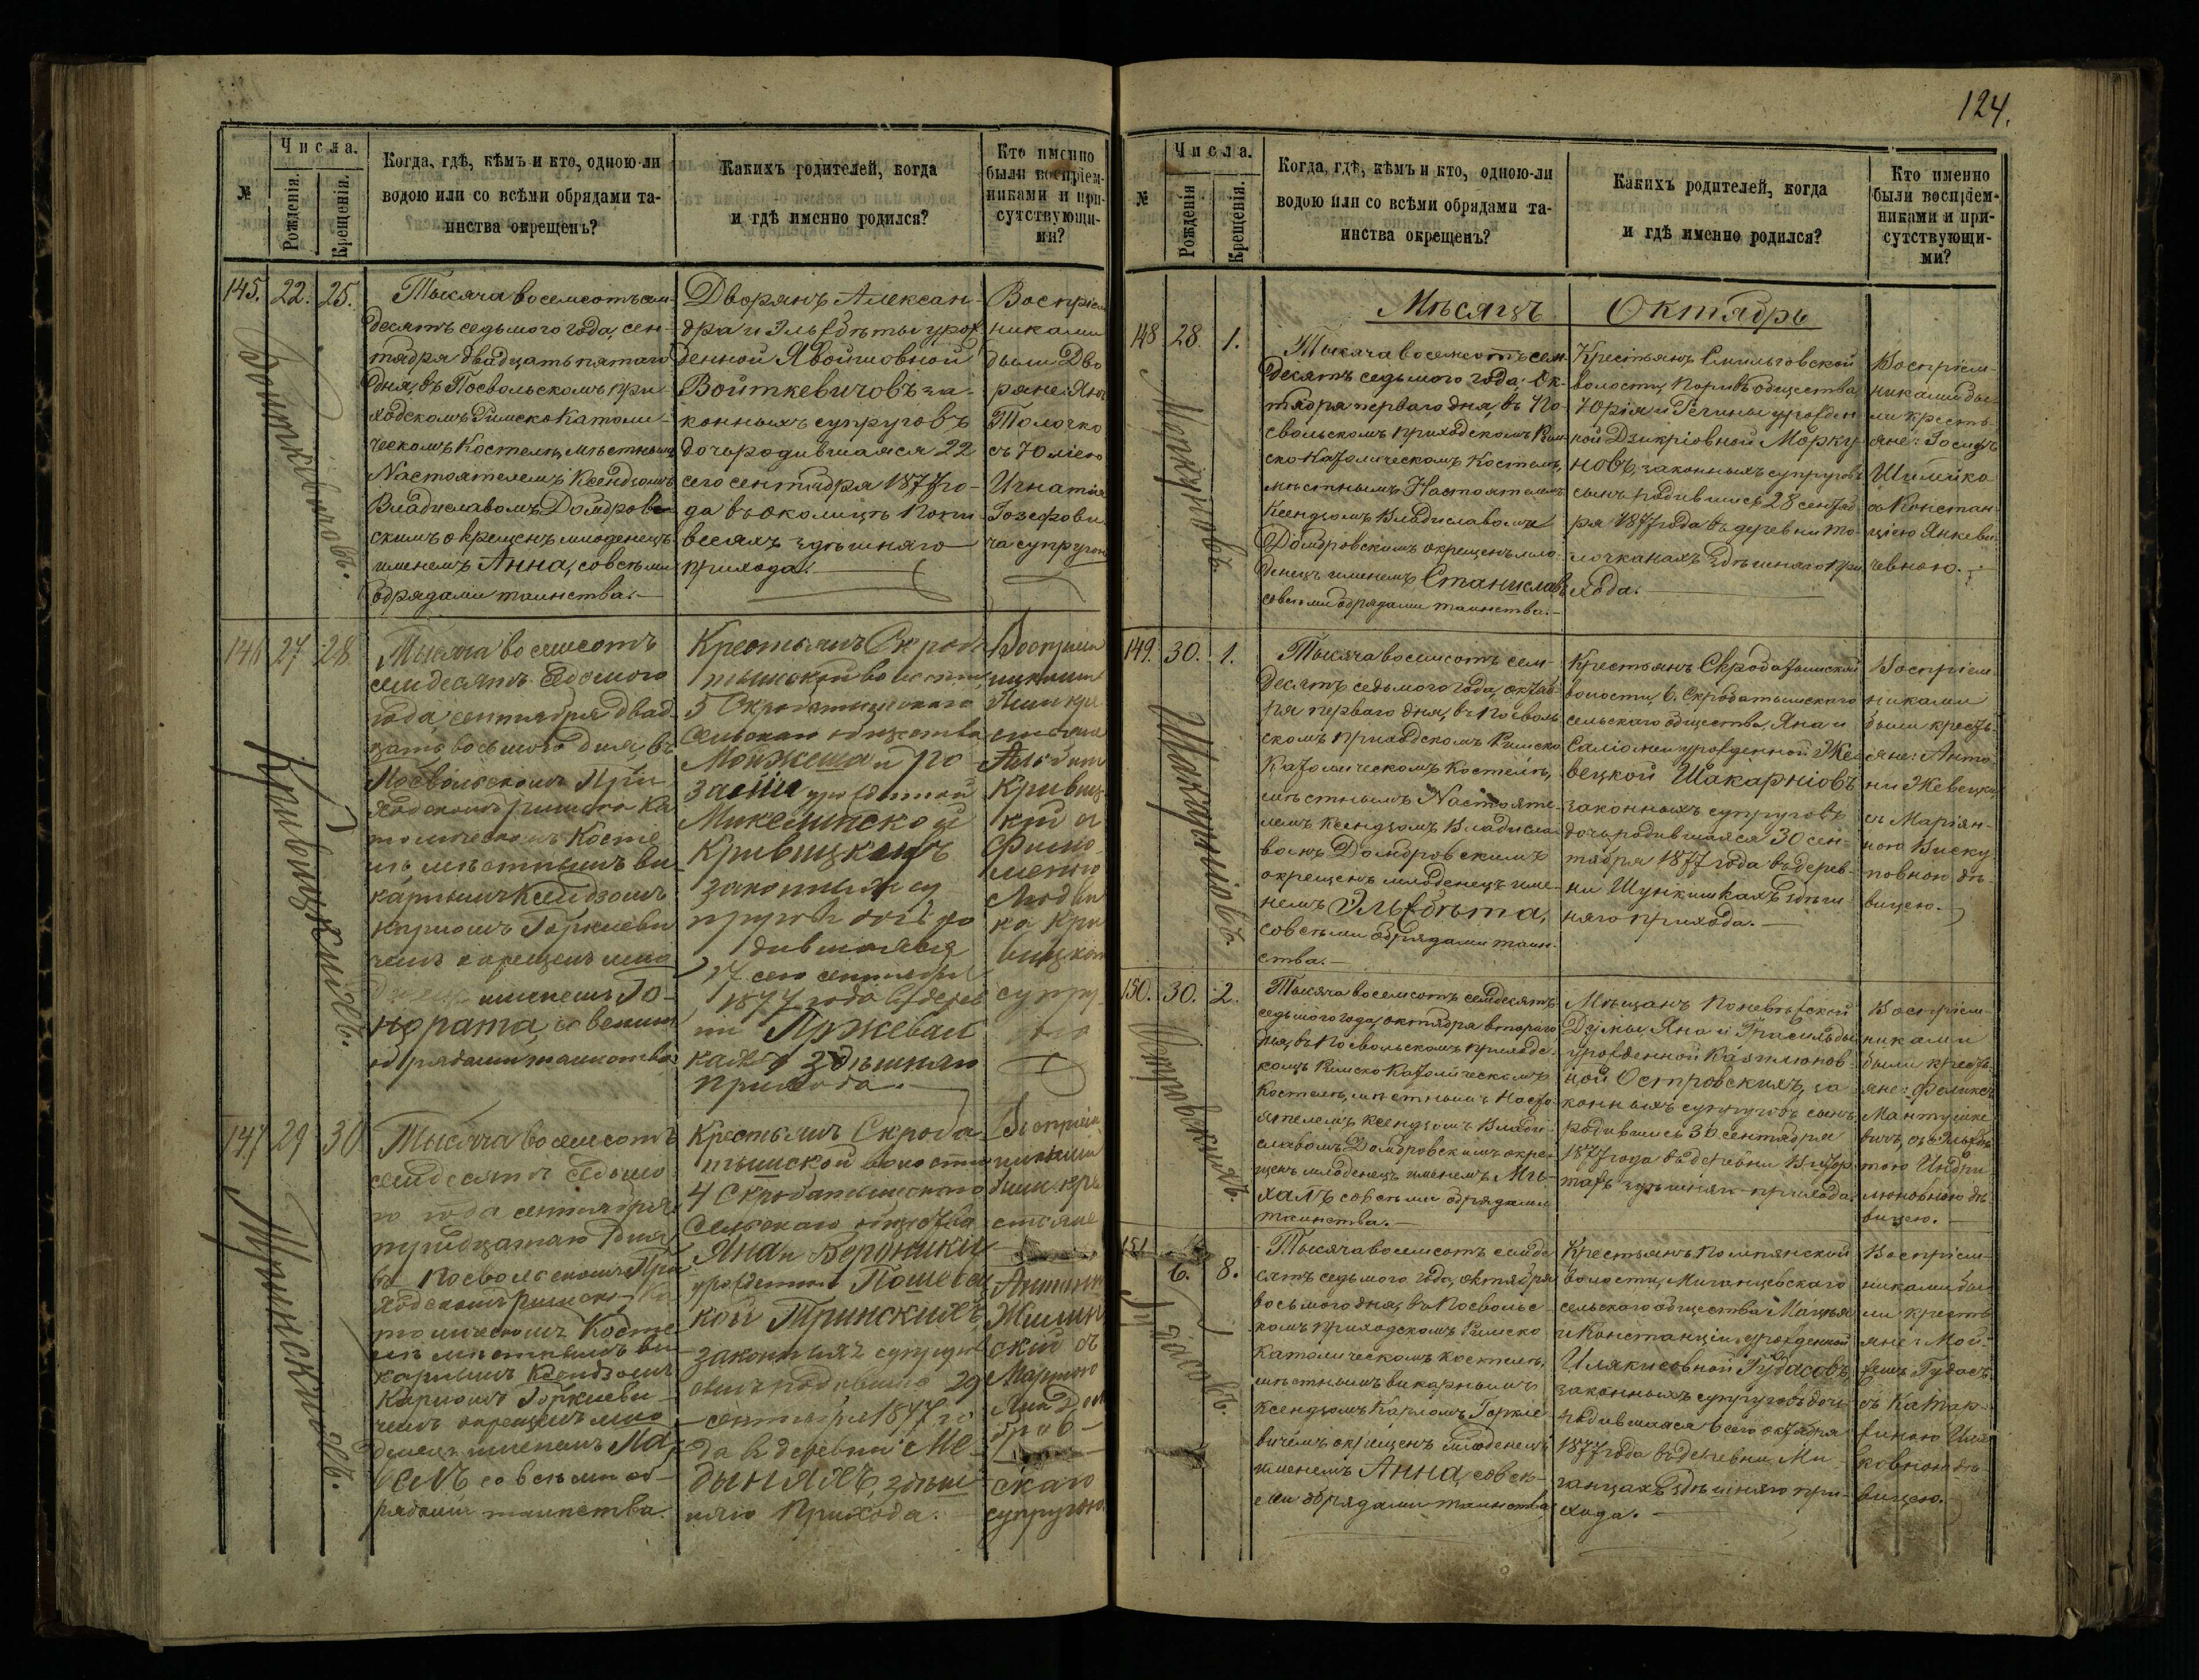 124.
№
Числа.
Рожденія.
Крещенія.
Когда, гдѣ, кѣмъ и кто, одною-ли
водою или со всѣми обрядами та-
инства окрещенъ?
Какихъ родителей, когда
и гдѣ именно родился?
Кто именно
были воспріем-
никами и при-
сутствующи-
ми?
145. 22. 25.
Войткевичовъ.
Тысяча восемсотъ сем-
десятъ седьмого года, сен-
тября двадцать пятаго
дня, въ Посвольскомъ при-
ходскомъ Римско Католи-
ческомъ Костелѣ, мѣстнымъ
Настоятелемъ Ксендзомъ
Владиславомъ Домбров-
скимъ окрещенъ младенецъ
именемъ Анна, со всѣми
обрядами таинства.
Дворянъ Алексан-
дра и Эльжбѣты урож
денной Явойшовной
Войткевичовъ за-
конныхъ супруговъ
дочь родившаяся 22
сего сентября 1877 го-
да въ околицѣ Попи-
весяхъ здѣшняго
прихода.
Воспріем
никами
были Дво
ряне: Янъ
Толочко
съ Юліею
Игнатія
Іозефови
ча супругою
146 27 28
Кривицкихъ.
Тысяча восемсотъ
семдесятъ седмого
года, сентября двад
цать восьмого дня, въ
Посвольскомъ При
ходскомъ римско Ка
толическомъ Косте
лѣ мѣстнымъ ви
карнымъ Ксендзомъ
Карломъ Горкеви
чемъ окрещенъ мла
именемъ Го-
нората, со всѣми
обрядами таинства
Крестьянъ Скрод
тышской волости
5 Скродатишскаго
сельскаго общества
Мойжеша и Ро
заліи урожденной
Микелинской
Кривицкихъ
законныхъ су
пруговъ дочь ро
дившаяся
27 сего сентября
1877 года въ дерев
ни Пржевал
кахъ здѣшняго
прихода.
Воспріем
никами
были кре
стьяне
Альбинъ
Кривиц
кій съ
Людви
ка Кри
вицкою
147 29 30
Тринскихъ.
Тысяча восемсотъ
семдесятъ седьмо
го года сентября
тридцатаго дня
въ Посвольскомъ При
ходскомъ римско-Ка
толическомъ Косте
лѣ мѣстнымъ ви
карнымъ Ксендзомъ
Карломъ Горкеви-
чемъ окрещенъ мла
денецъ именемъ
со всѣми об-
рядами таинства.
Крестьянъ Скрода
тышской волости
4 Скродатышскаго
Сельскаго общества
Яна и Вероники
урожденной Пошевец
кой Тринскихъ,
законныхъ супругов
сынъ родившійся 29
сентября 1877 го
да въ деревни Ме-
дыняхъ, здѣш
няго прихода.
Воспріем
никами
были кре
стьяне
Антоній
Жилин
скій съ
скаго
супругою
№
Числа.
Рожденія
Крещенія.
Когда, гдѣ, кѣмъ и кто, одною-ли
водою или со всѣми обрядами та-
инства окрещенъ?
Какихъ родителей, когда
и гдѣ именно родился?
Кто именно
были воспріем-
никами и при-
сутствующи-
ми?
Мѣсяцъ Октябрь
148 28. 1.
Моркуновъ.
Тысяча восемсотъ сем-
десятъ седьмого года; Ок-
тября перваго дня, въ По-
свольскомъ приходскомъ Рим-
ско-Католическомъ Костелѣ,
мѣстнымъ Настоятелемъ
Ксендзомъ Владиславомъ
Домбровскимъ окрещенъ мла-
денецъ именемъ Станиславъ
со всѣми обрядами таинства.
Крестьянъ Смильговской
волости, общества
Юрія и Регины урожден-
ной Дзикріовной Морку-
новъ, законныхъ супруговъ
сынъ родившійся 28 сентяб
ря 1877 года въ деревни То-
лочканахъ здѣшняго при
хода.
Воспріем-
никами бы-
ли кресть-
яне: Іосифъ
Шимейко
съ Констан-
цією Янкеви-
чевною.
149. 30. 1.
Шакарніовъ.
Тысяча восемсотъ сем-
десятъ седьмого года, октяб-
ря перваго дня, въ Посволь
скомъ приходскомъ Римско
Католическомъ Костелѣ,
мѣстнымъ Настояте-
лемъ Ксендзомъ Владисла-
вомъ Домбровскимъ
окрещенъ младенецъ име-
немъ Эльжбѣта,
со всѣми обрядами таин-
ства.
Крестьянъ Скродатышской
волости, 6. Скродатышскаго
сельскаго общества, Яна и
Саломеи урожденной Же-
вецкой Шакарніовъ
законныхъ супруговъ
дочь родившаяся 30 сен-
тября 1877 года въ дерев-
ни Шункишкахъ здѣш-
няго прихода.
Воспріем
никами
были кресть
яне: Анто
ни Жевецки
съ Маріян-
ною Виску
повною дѣ-
вицею.
150. 30. 2.
Островскихъ
Тысяча восемсотъ семдесятъ
седьмого года, октября второго
дня, въ Посвольскомъ приходс-
комъ Римско Католическомъ
Костелѣ, мѣстнымъ Насто-
ятелемъ Ксендзомъ Влади-
славомъ Домбровскимъ окре-
щенъ младенецъ именемъ Ми-
халъ со всѣми обрядами
таинства.
Мѣщанъ Поневѣжской
Думы, Яна и Грасильды
урожденной Казилюнов-
ной Островскихъ, за
конныхъ супруговъ сынъ
родившійся 30 сентября
1877 года въ деревни
здѣшняго прихода.
Воспріем-
никами
были кресть
яне: Феликсъ
Мантушке
вичъ, съ Эльжбѣ
тою Индри
люновною дѣ
вицею.
151 6. 8.
Гудасовъ.
Тысяча восемсотъ семде-
сятъ седьмого года, октября
восьмого дня, въ Посвольс-
комъ приходскомъ Римско
Католическомъ Костелѣ,
мѣстнымъ викарнымъ
Ксендзомъ Карломъ Горкле-
вичемъ окрещенъ младенецъ
именемъ Анна, со всѣ-
ми обрядами таинства
Крестьянъ Помпянской
волости, Миганцевскаго
сельскаго общества Мацѣя
и Констанціи урожденной
Илякисовной Гудасовъ,
законныхъ супруговъ дочь
родившаяся 6 сего октября
1877 года въ деревни Ми-
ганцахъ здѣшняго при-
хода.
Воспріем-
никами бы-
ли кресть
яне: Мой-
жешъ Гудасъ,
съ Катар-
жиною
ковною дѣ-
вицею.